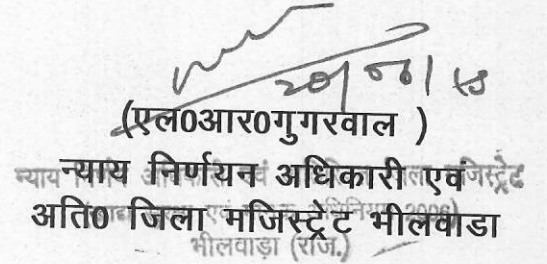 20/06/18
(एल0आर0गुगरवाल )
न्याय निर्णयन अधिकारी एवं
अति0 जिला मजिस्ट्रेट भीलवाडा
भीलवाड़ा (राज.)